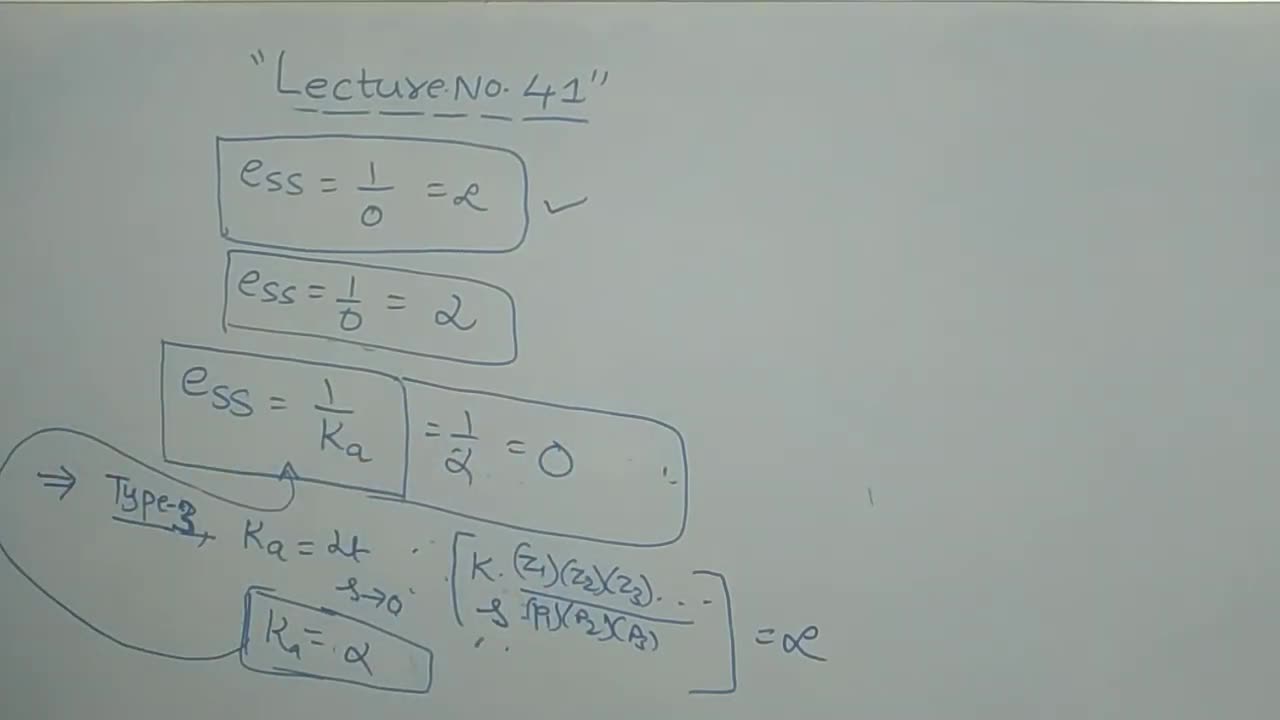 "Lecture.No. 41"
ess = 1/0 = α
ess = 1/0 = α
ess = 1/Ka = 1/α = 0
⇒ Type-3, Ka = Lt s→0 [K.(z1)(z2)(z3)... / s (p1)(p2)(p3)] = α
Ka = α